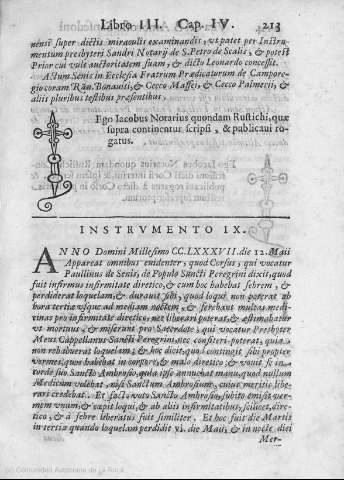 Libro III. Cap. IV. 213
nensi super dictis miraculis examinandis, ut patet per Instru-
mentum presbyteri Sandri Notarij de S. Petro de Scalis, & potest
Prior cui vult auctoritatem suam, & dicto Leonardo concessit.
Actum Senis in Ecclesia Fratrum Prædicatorum de Camporę-
gio coram Ran. Bonauiti, & Cecco Massei, & Cecco Palmerii, &
aliis pluribus testibus præsentibus.
Ego Iacobus Notarius quondam Rustichi, quæ
supra continentur scripsi, & publicaui ro-
gatus.
INSTRUMENTO IX.
ANNO Domini Millesimo CC.LXXXVII. die 12. Maii
Appareat omnibus euidenter, quod Corsus, qui vocatur
Paullinus de Senis, de Populo Sancti Peregrini dixit, quod
fuit infirmus infirmitate diretico, & cum hoc habebat febrem, &
perdiderat loquelam, & durauit sibi, quod loqui non poterat ab
hora tertia usque ad mediam noctem, & fecerunt multas medi-
cinas pro infirmitate diretico, nec liberari poterat, & æstimabatur
ut mortuus, & miserunt pro Sacerdote, qui vocatur Presbyter
Meus Cappellanus Sancti Peregrini, nec confiteri poterat, quia
non rehabuerat loquelam; & hoc dicit, quod contingit sibi propter
vermes, quos habebat in corpore, & malo diretico; & vouit se in
corde suo Sancto Ambrosio, quia ipse annuebat manu, quod nullum
Medicum volebat, nisi Sanctum Ambrosium, cuius meritis libe-
rari credebat. Et facto voto Sancto Ambrosio, subito emisit ver-
mem unum, & rupit loqui, & ab aliis infirmitatibus, scilicet, dire-
tico, & à febre liberatus fuit similiter. Et hoc fuit die Martis
in tertia quando loquelam perdidit vi. die Maii, & in nocte diei
Mer-
(c) Comunidad Autónoma de La Rioja